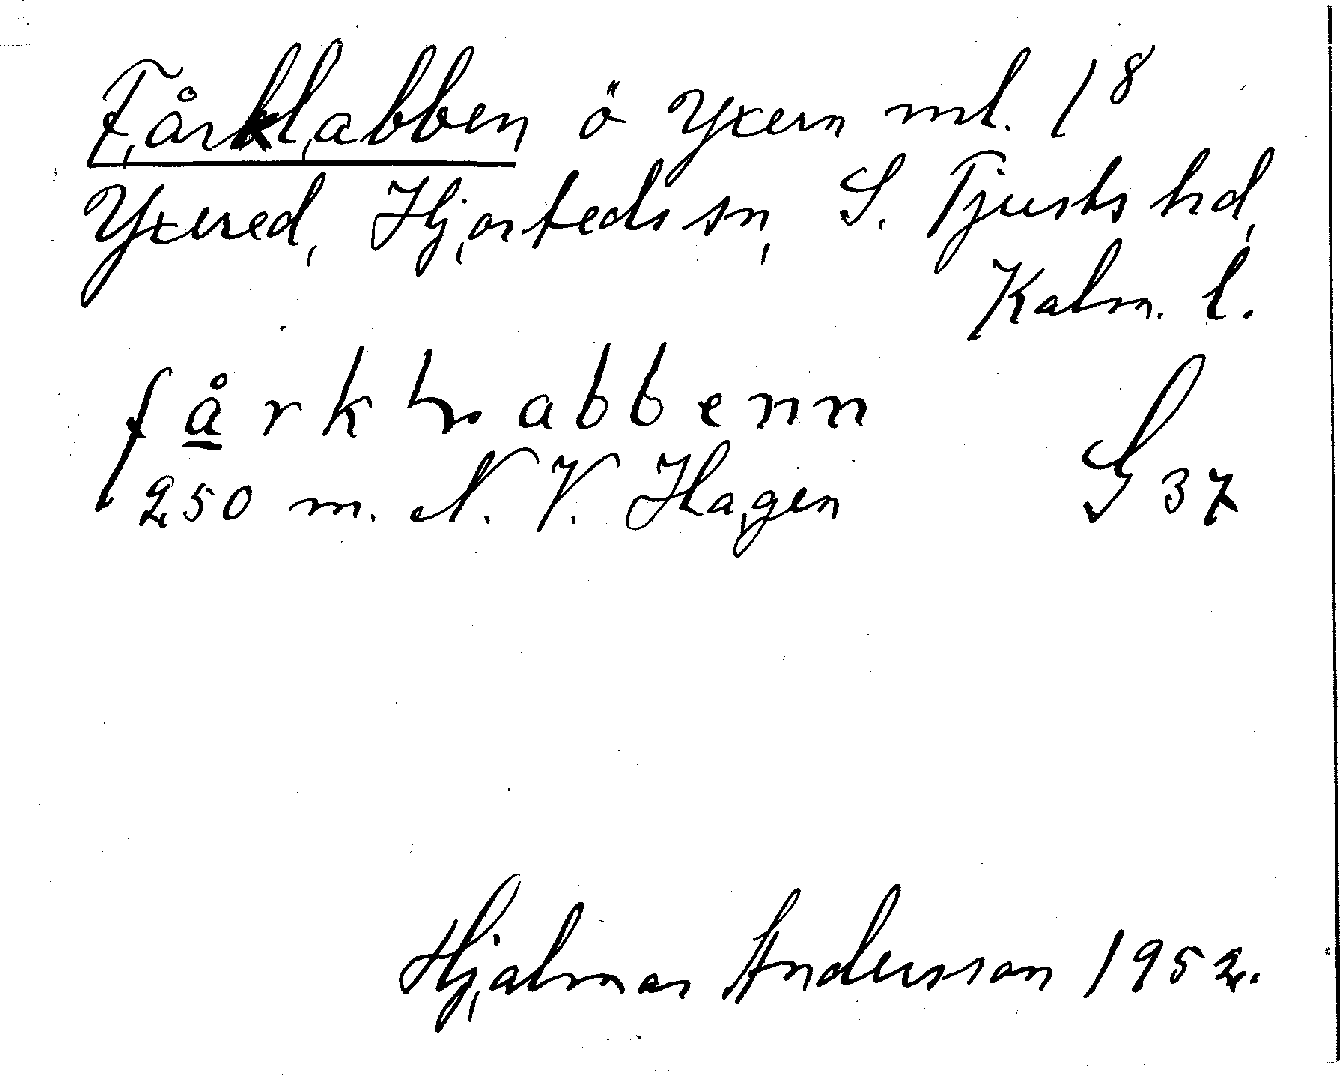 Fårklabben ö Yxern ml. 1⁸
Yxered, Hjorteds sn, S. Tjusts hd,
Kalm. l.
fårkLabbenn
250 m. N. V. Hagen G 37
Hjalmar Andersson 1952.